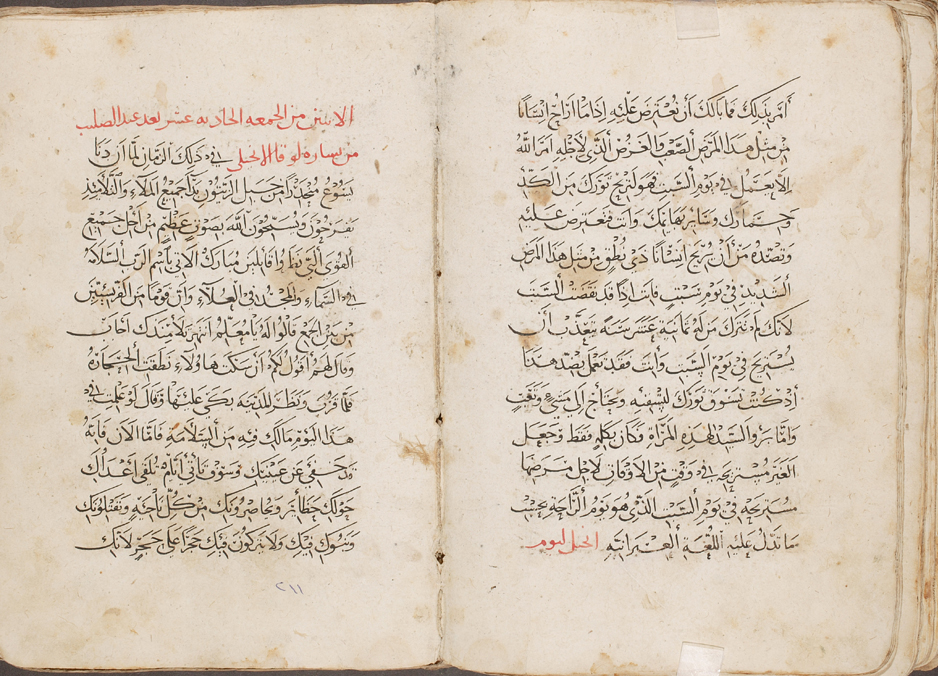 أمر بذلك فما بالك أن تعترض عليه إذا ما أراح إنسانا
من مثل هذا المرض الصعب والغرض الذي لأجله أمر الله
ألا يعتمل في يوم السبت هو لتريح ثورك من الكد
وحمارك وسائر بهايمك وانت فتعترض عليه
وتصده من أن يريح إنسانا ذي نطق من مثل هذا المرض
الشديد في يوم سبت فانت اذا قد نقضت السبت
لانك لم تترك من له ثمانية عشر سنة يتعذب أن
يستريح في يوم السبت وانت فقد تعمل بضد هذا
إذ كنت تسوق ثورك لتسقيه ويحتاج إلي مشي وتعب
واما برو السيد لهذه المرأة فكان بكلمه فقط وجعل
الغير مستريحه في وقت من الاوقات لاجل مرضها
مستريحه في يوم السبت الذي هو يوم الراحه بحسب
ما تدل عليه اللغه العبرانيه انجيل ليوم
الاثنين من الجمعه الحاديه عشر بعد عيد الصليب
من بشارة لوقا الانجيلي في ذلك الزمان لما أن دنا
يسوع منحدرا من جبل الزيتون بدا جميع الملاء والتلاميذ
يفرحون ويسبحون الله بصوت عظيم من اجل جميع
القوي التي نظروا قايلين مبارك الاتي باسم الرب السلامه
في السماء والمجد في العلاء وان قوما من الفريسيين
من بين الجمع قالوا له يا معلم انتهر تلاميذك اجاب
وقال لهم أقول لكم أن سكت هاولاء نطقت الحجاره
فلما قرب ونظر المدينه بكي عليها وقال لو علمت في
هذا اليوم مالك فيه من السلامه فاما الان فانه
قد خفي عن عينيك وسوف تأتي أيام تلقي اعداك
حولك حظائر ويحاصرونك من كل ناحيه ويقتلونك
وبنيوك فيك ولا يتركون فيك حجرا علي حجر لانك
٢١١